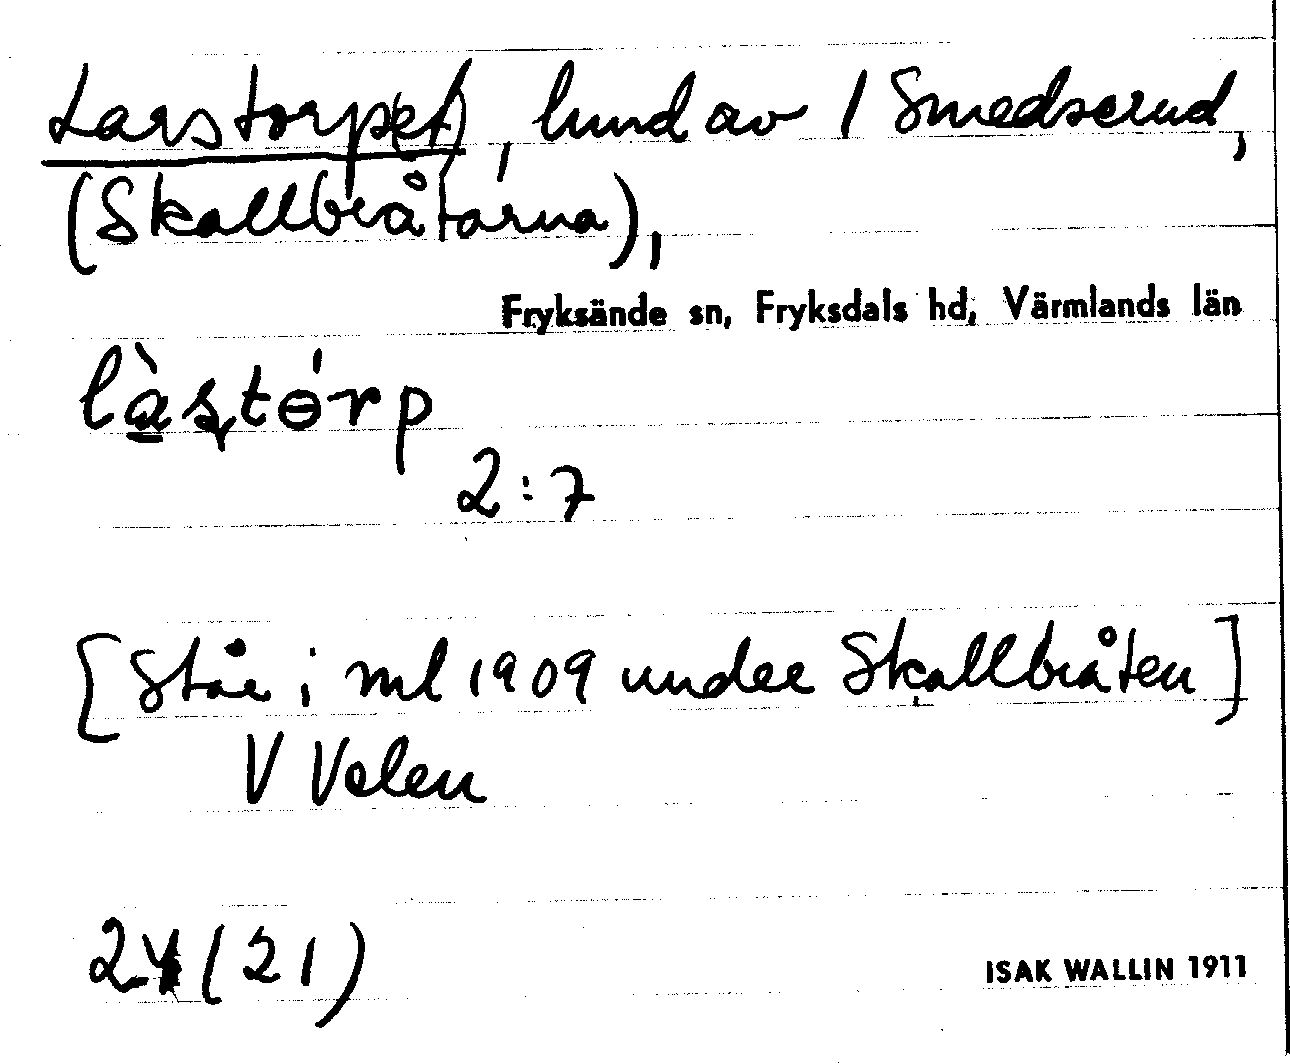 Larstorp(et), lund av 1 Smedserud,
(Skallbråtarna),
Fryksände sn, Fryksdals hd, Värmlands län
là̱ʂtɵ́rp
2:7
[Står i ml 1909 under Skallbråten]
V Velen
24 (21)
ISAK WALLIN 1911